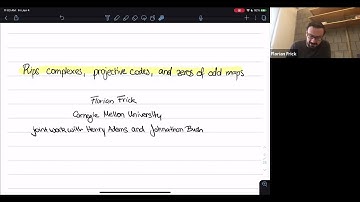 Rips complexes, projective codes, and zeros of odd maps
Florian Frick
Carnegie Mellon University
joint work with Henry Adams and Johnathan Bush
Florian Frick